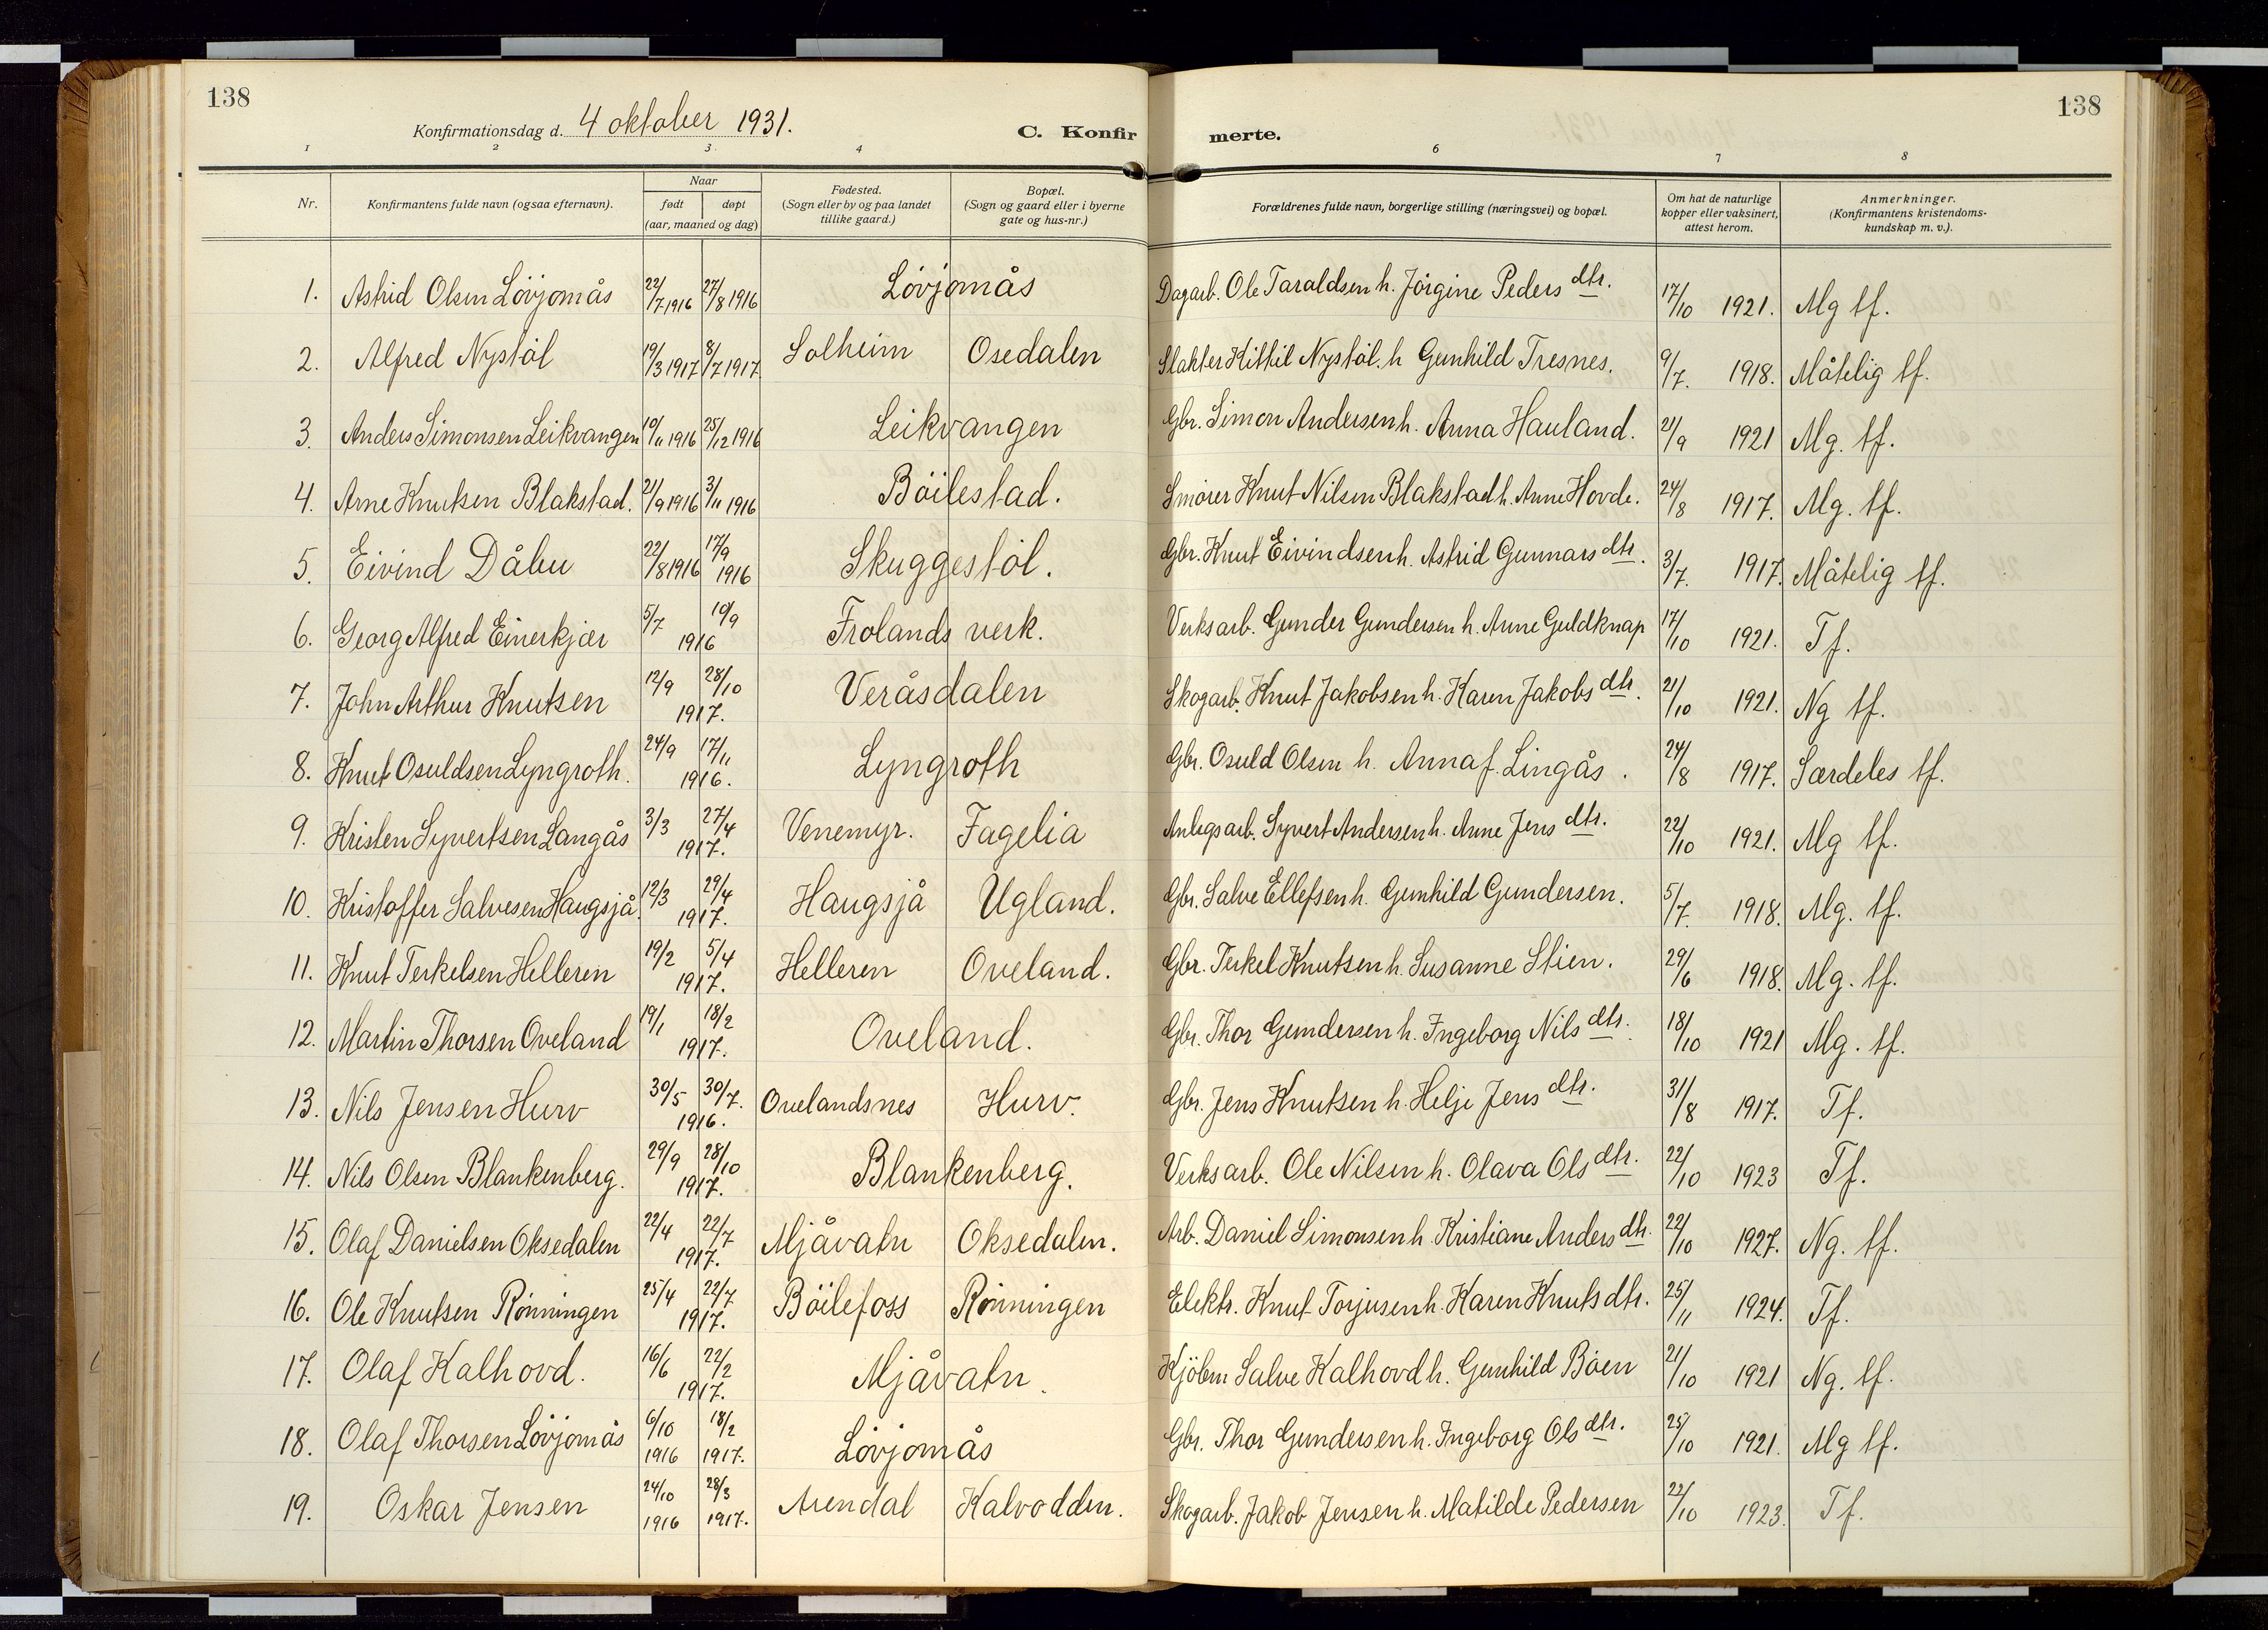 138
138
Konfirmationsdag d. 4 oktober 1931.
C. Konfir
merte.
1 2 3 4 6 7 8
Nr.
Konfirmantens fulde navn (ogsaa efternavn).
Naar
født døpt
(aar, maaned og dag)
Fødested.
(Sogn eller by og paa landet
tillike gaard.)
Bopæl.
(Sogn og gaard eller i byerne
gate og hus-nr.)
Forældrenes fulde navn, borgerlige stilling (næringsvei) og bopæl.
Om hat de naturlige
kopper eller vaksinert,
attest herom.
Anmerkninger.
(Konfirmantens kristendoms-
kundskap m. v.).
1. Astrid Olsen Lövjomås 22/7 1916 27/8 1916 Lövjomås Dagarb. Ole Taraldsen h. Jörgine Peders dtr. 17/10 1921. Mg tf.
2. Alfred Nystöl 19/3 1917 8/7 1917. Solheim Osedalen Slakter Kittil Nystöl. h Gunhild Tresnes. 9/7. 1918. Måtelig tf.
3. Anders Simonsen Leikvangen 10/11 1916 25/12 1916 Leikvangen Gbr. Simon Andersen h. Anna Hauland. 21/9 1921 Mg. tf.
4. Arne Knutsen Blakstad. 21/9 1916 3/11 1916 Böilestad. Smörer Knut Nilsen Blakstad h. Anne Hovde. 24/8 1917. Mg. tf.
5. Eivind Dålu 22/8 1916 17/9 1916 Skuggestöl. Gbr. Knut Eivindsen h. Astrid Gunnars dtr. 3/7. 1917. Måtelig tf.
6. Georg Alfred Einerkjær 5/7 10/9 1916 Frolands verk. Verksarb. Gunder Gundersen h. Anne Guldknap 17/10 1921. Tf.
7. John Arthur Knutsen 12/9 28/10 1917. Veråsdalen Skogarb. Knut Jakobsen h. Karen Jakobs dtr. 21/10 1921. Ng tf.
8. Knut Osuldsen Lyngroth. 24/9 17/11 1916. Lyngroth Gbr. Osuld Olsen h. Anna f. Lingås. 24/8 1917. Særdeles tf.
9. Kristen Syvertsen Langås 3/3 27/4 1917. Venemyr. Fagelia Anlegsarb. Syvert Andersen h. Anne Jens dtr. 22/10 1921. Mg tf.
10. Kristoffer Salvesen Haugsjå. 12/3 29/4 1917. Haugsjå Ugland. Gbr. Salve Ellefsen h. Gunhild Gundersen. 5/7. 1918. Mg. tf.
11. Knut Terkelsen Helleren 19/2 5/4 1917. Helleren Oveland. Gbr. Terkel Knutsen h. Susanne Stien. 29/6 1918. Mg. tf.
12. Martin Thorsen Oveland 19/1 18/2 1917. Oveland. Gbr. Thor Gundersen h. Ingeborg Nils dtr. 18/10 1921 Mg. tf.
13. Nils Jensen Hurv 30/5 30/7. 1916. Ovelandsnes Hurv. Gbr. Jens Knutsen h. Helje Jens dtr. 31/8 1917. Tf.
14. Nils Olsen Blankenberg. 29/9 28/10 1917. Blankenberg. Verksarb. Ole Nilsen h. Olava Ols dtr. 22/10 1923 Tf.
15. Olaf Danielsen Oksedalen 22/4 22/7 1917. Mjåvatn Oksedalen. Arb. Daniel Simonsen h. Kristiane Anders dtr. 22/10 1927. Ng. tf.
16. Ole Knutsen Rönningen 25/4 22/7 1917. Böilefoss Rönningen Elektr. Knut Torjusen h. Karen Knuts dtr. 25/11 1924. Tf.
17. Olaf Kalhovd. 16/6 22/2 1917. Mjåvatn. Kjöbm Salve Kalhovd h. Gunhild Böen 21/10 1921 Ng. tf.
18. Olaf Thorsen Lövjomås 6/10 1916 18/2 1917. Lövjomås Gbr. Thor Gundersen h. Ingeborg Ols dtr. 25/10 1921. Mg tf.
19. Oskar Jensen 24/10 1916 28/3 1917. Arendal Kalvodden. Skogarb. Jakob Jensen h. Matilde Pedersen 22/10 1923. Tf.